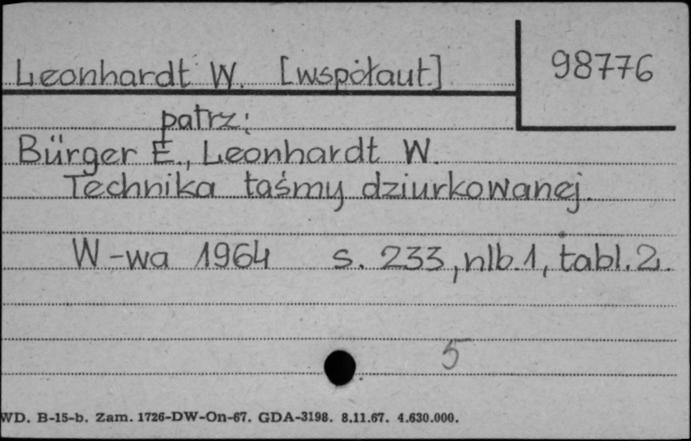 Leonhardt W. [współaut.]
98776
patrz:
Bürger E., Leonhardt W.
Technika taśmy dziurkowanej.
W-wa 1964 s. 233, nlb. 1, tabl. 2.
5
WD. B-15-b. Zam. 1726-DW-On-67. GDA-3198. 8.11.67. 4.630.000.